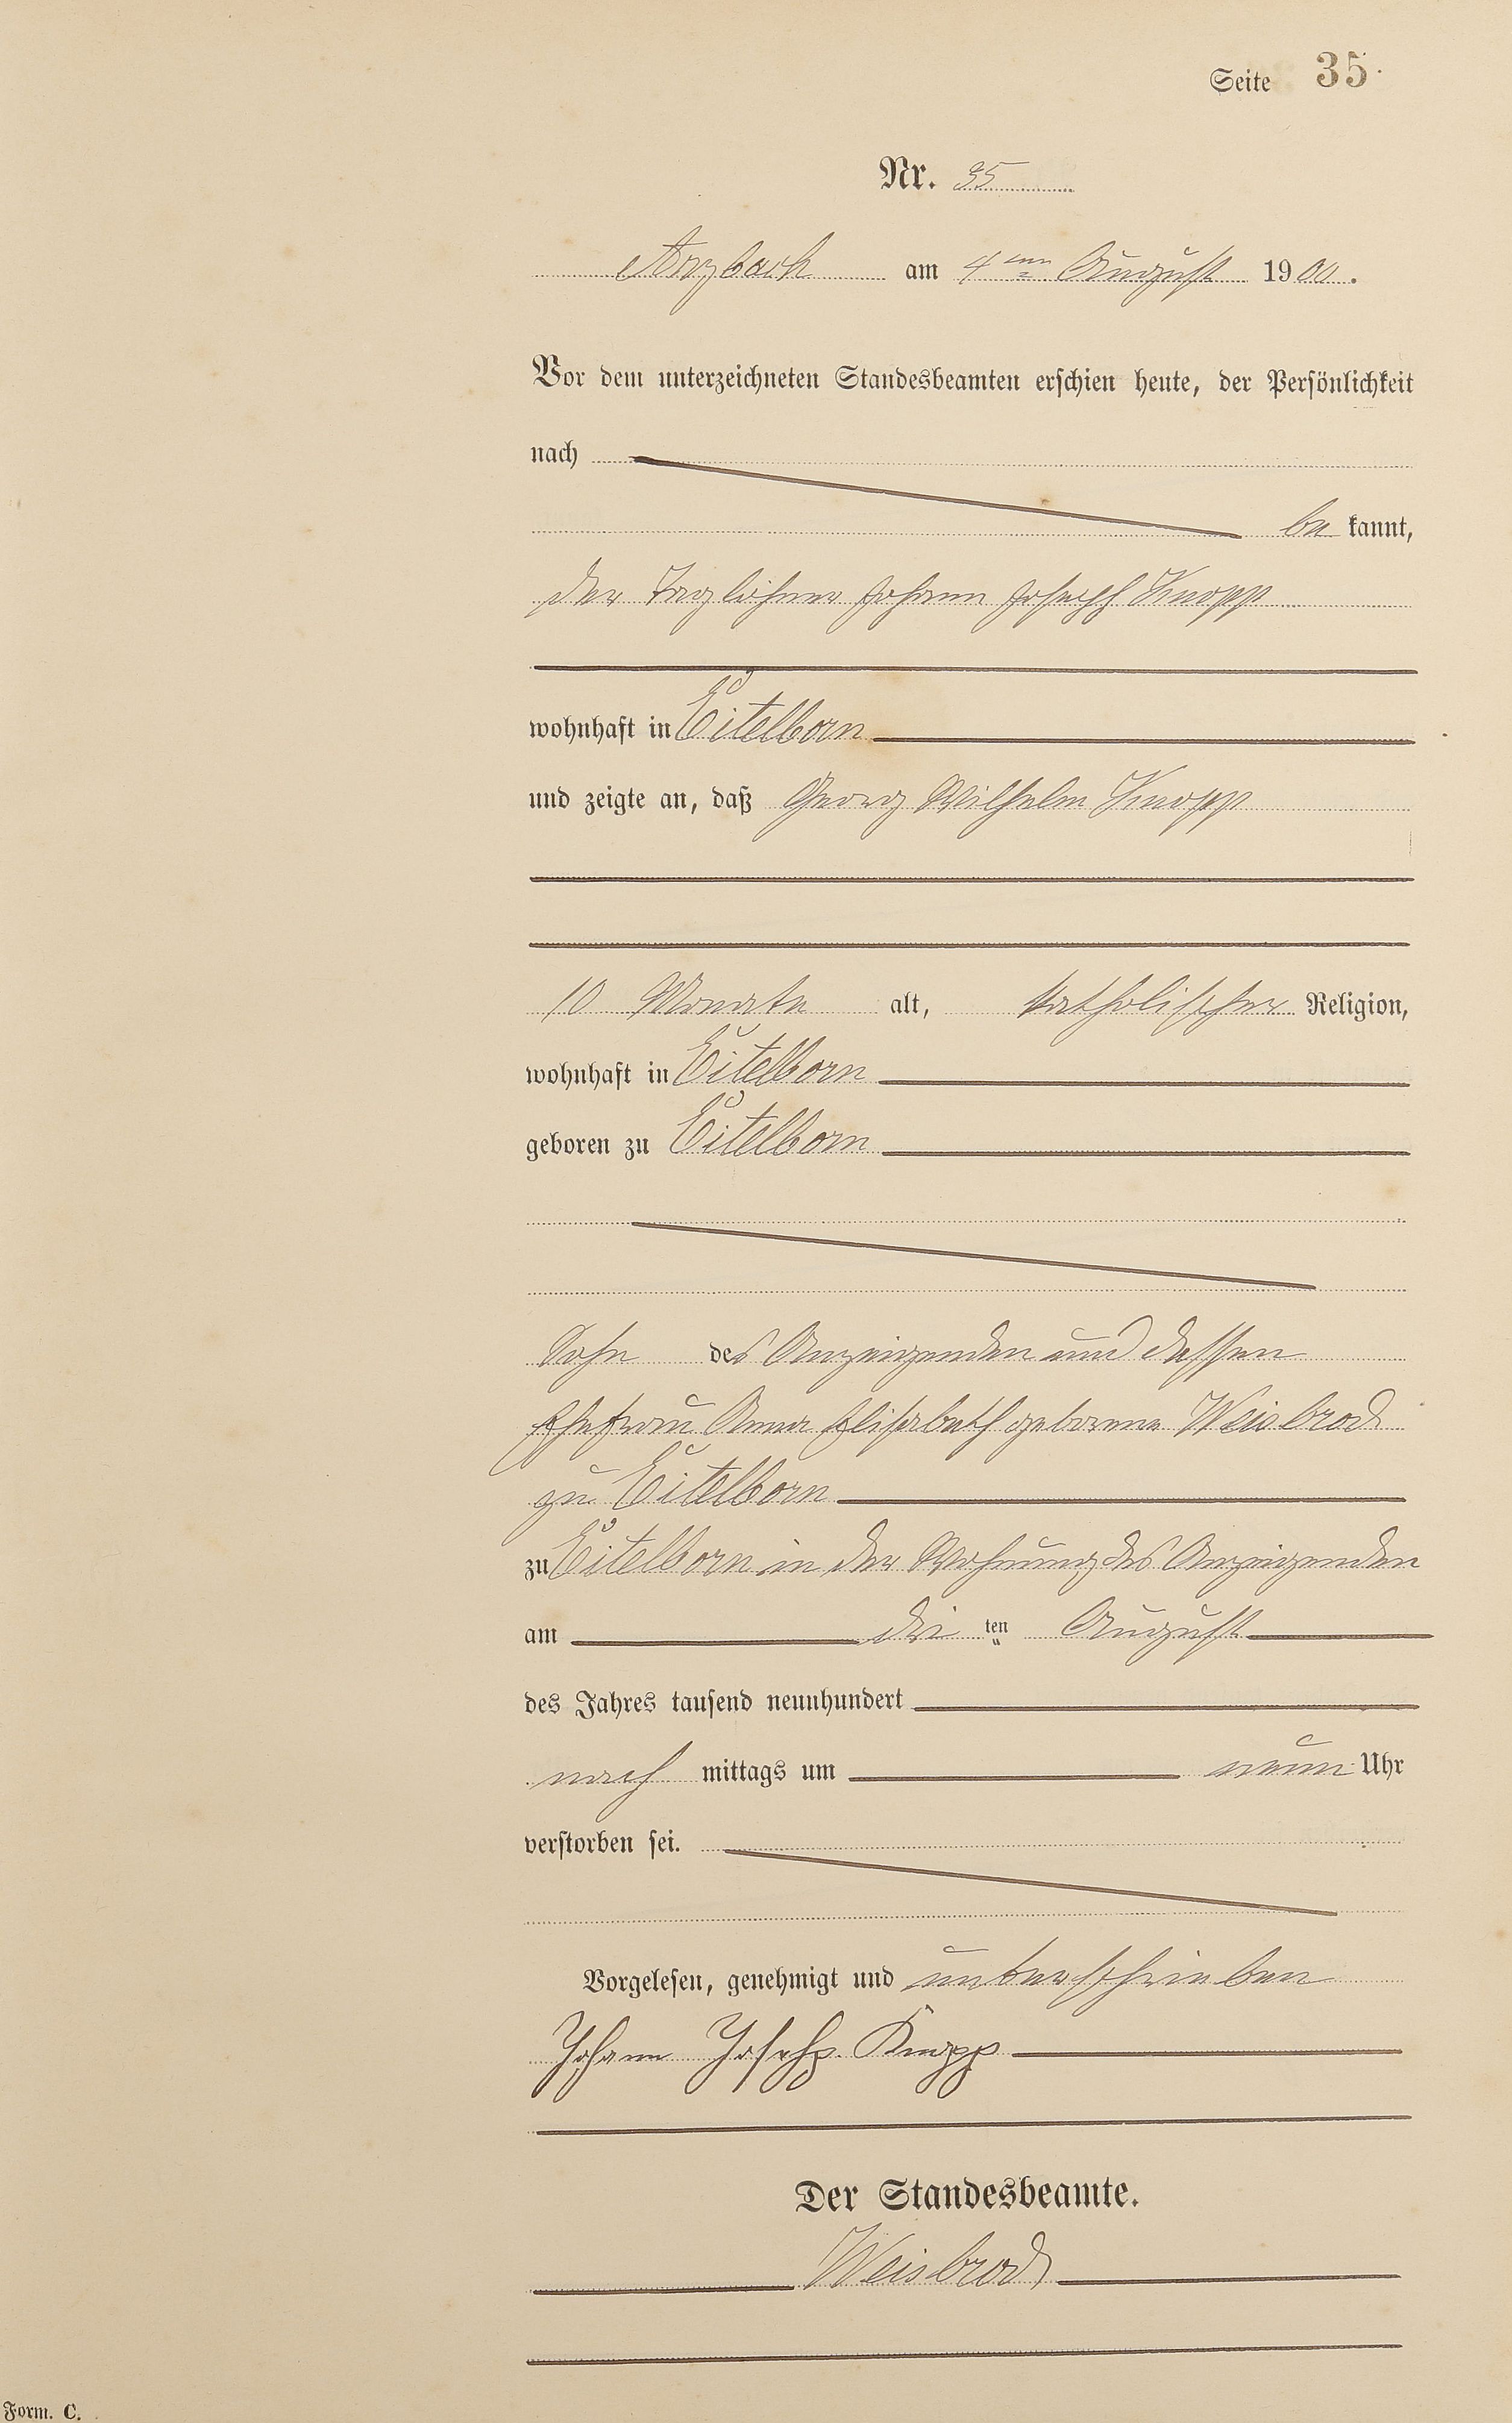 Seite 35.
Nr. 35
Arzbach am 4ten August 1900.
Vor dem unterzeichneten Standesbeamten erschien heute, der Persönlichkeit
nach
be kannt,
der Taglöhner Johann Joseph Knopp
wohnhaft in Eitelborn
und zeigte an, daß Georg Wilhelm Knopp
10 Monate alt, katholischer Religion,
wohnhaft in Eitelborn
geboren zu Eitelborn
Sohn des Anzeigenden und dessen
Ehefrau Anna Elisabeth geborene Weisbrod
zu Eitelborn
zu Eitelborn in der Wohnung des Anzeigenden
am ten August
des Jahres tausend neunhundert
nach mittags um neun Uhr
verstorben sei.
Vorgelesen, genehmigt und unterschrieben
Johann Joseph Knopp
Der Standesbeamte.
Weisbrod
Form. C.